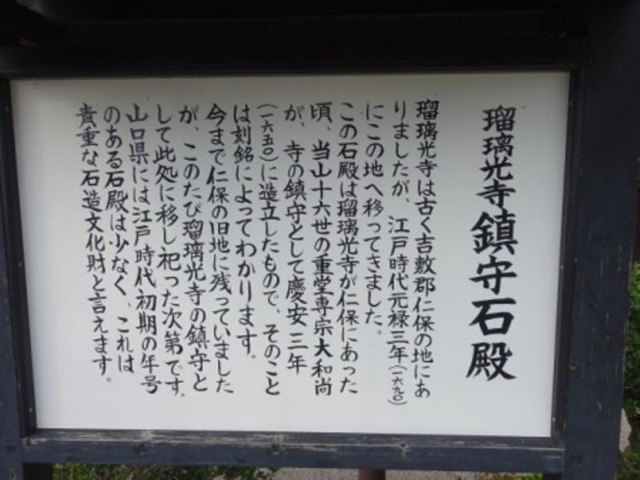 瑠璃光寺鎮守石殿
瑠璃光寺は古く吉敷郡仁保の地にあ
りましたが、江戸時代元禄三年(一六九〇)
にこの地へ移ってきました。
この石殿は瑠璃光寺が仁保にあった
頃、当山十六世の重堂専宗大和尚
が、寺の鎮守として慶安三年
(一六五〇)に造立したもので、そのこと
は刻銘によってわかります。
今まで仁保の旧地に残っていました
が、このたび瑠璃光寺の鎮守と
して此処に移し祀った次第です。
山口県には江戸時代初期の年号
のある石殿は少なく、これは
貴重な石造文化財と言えます。